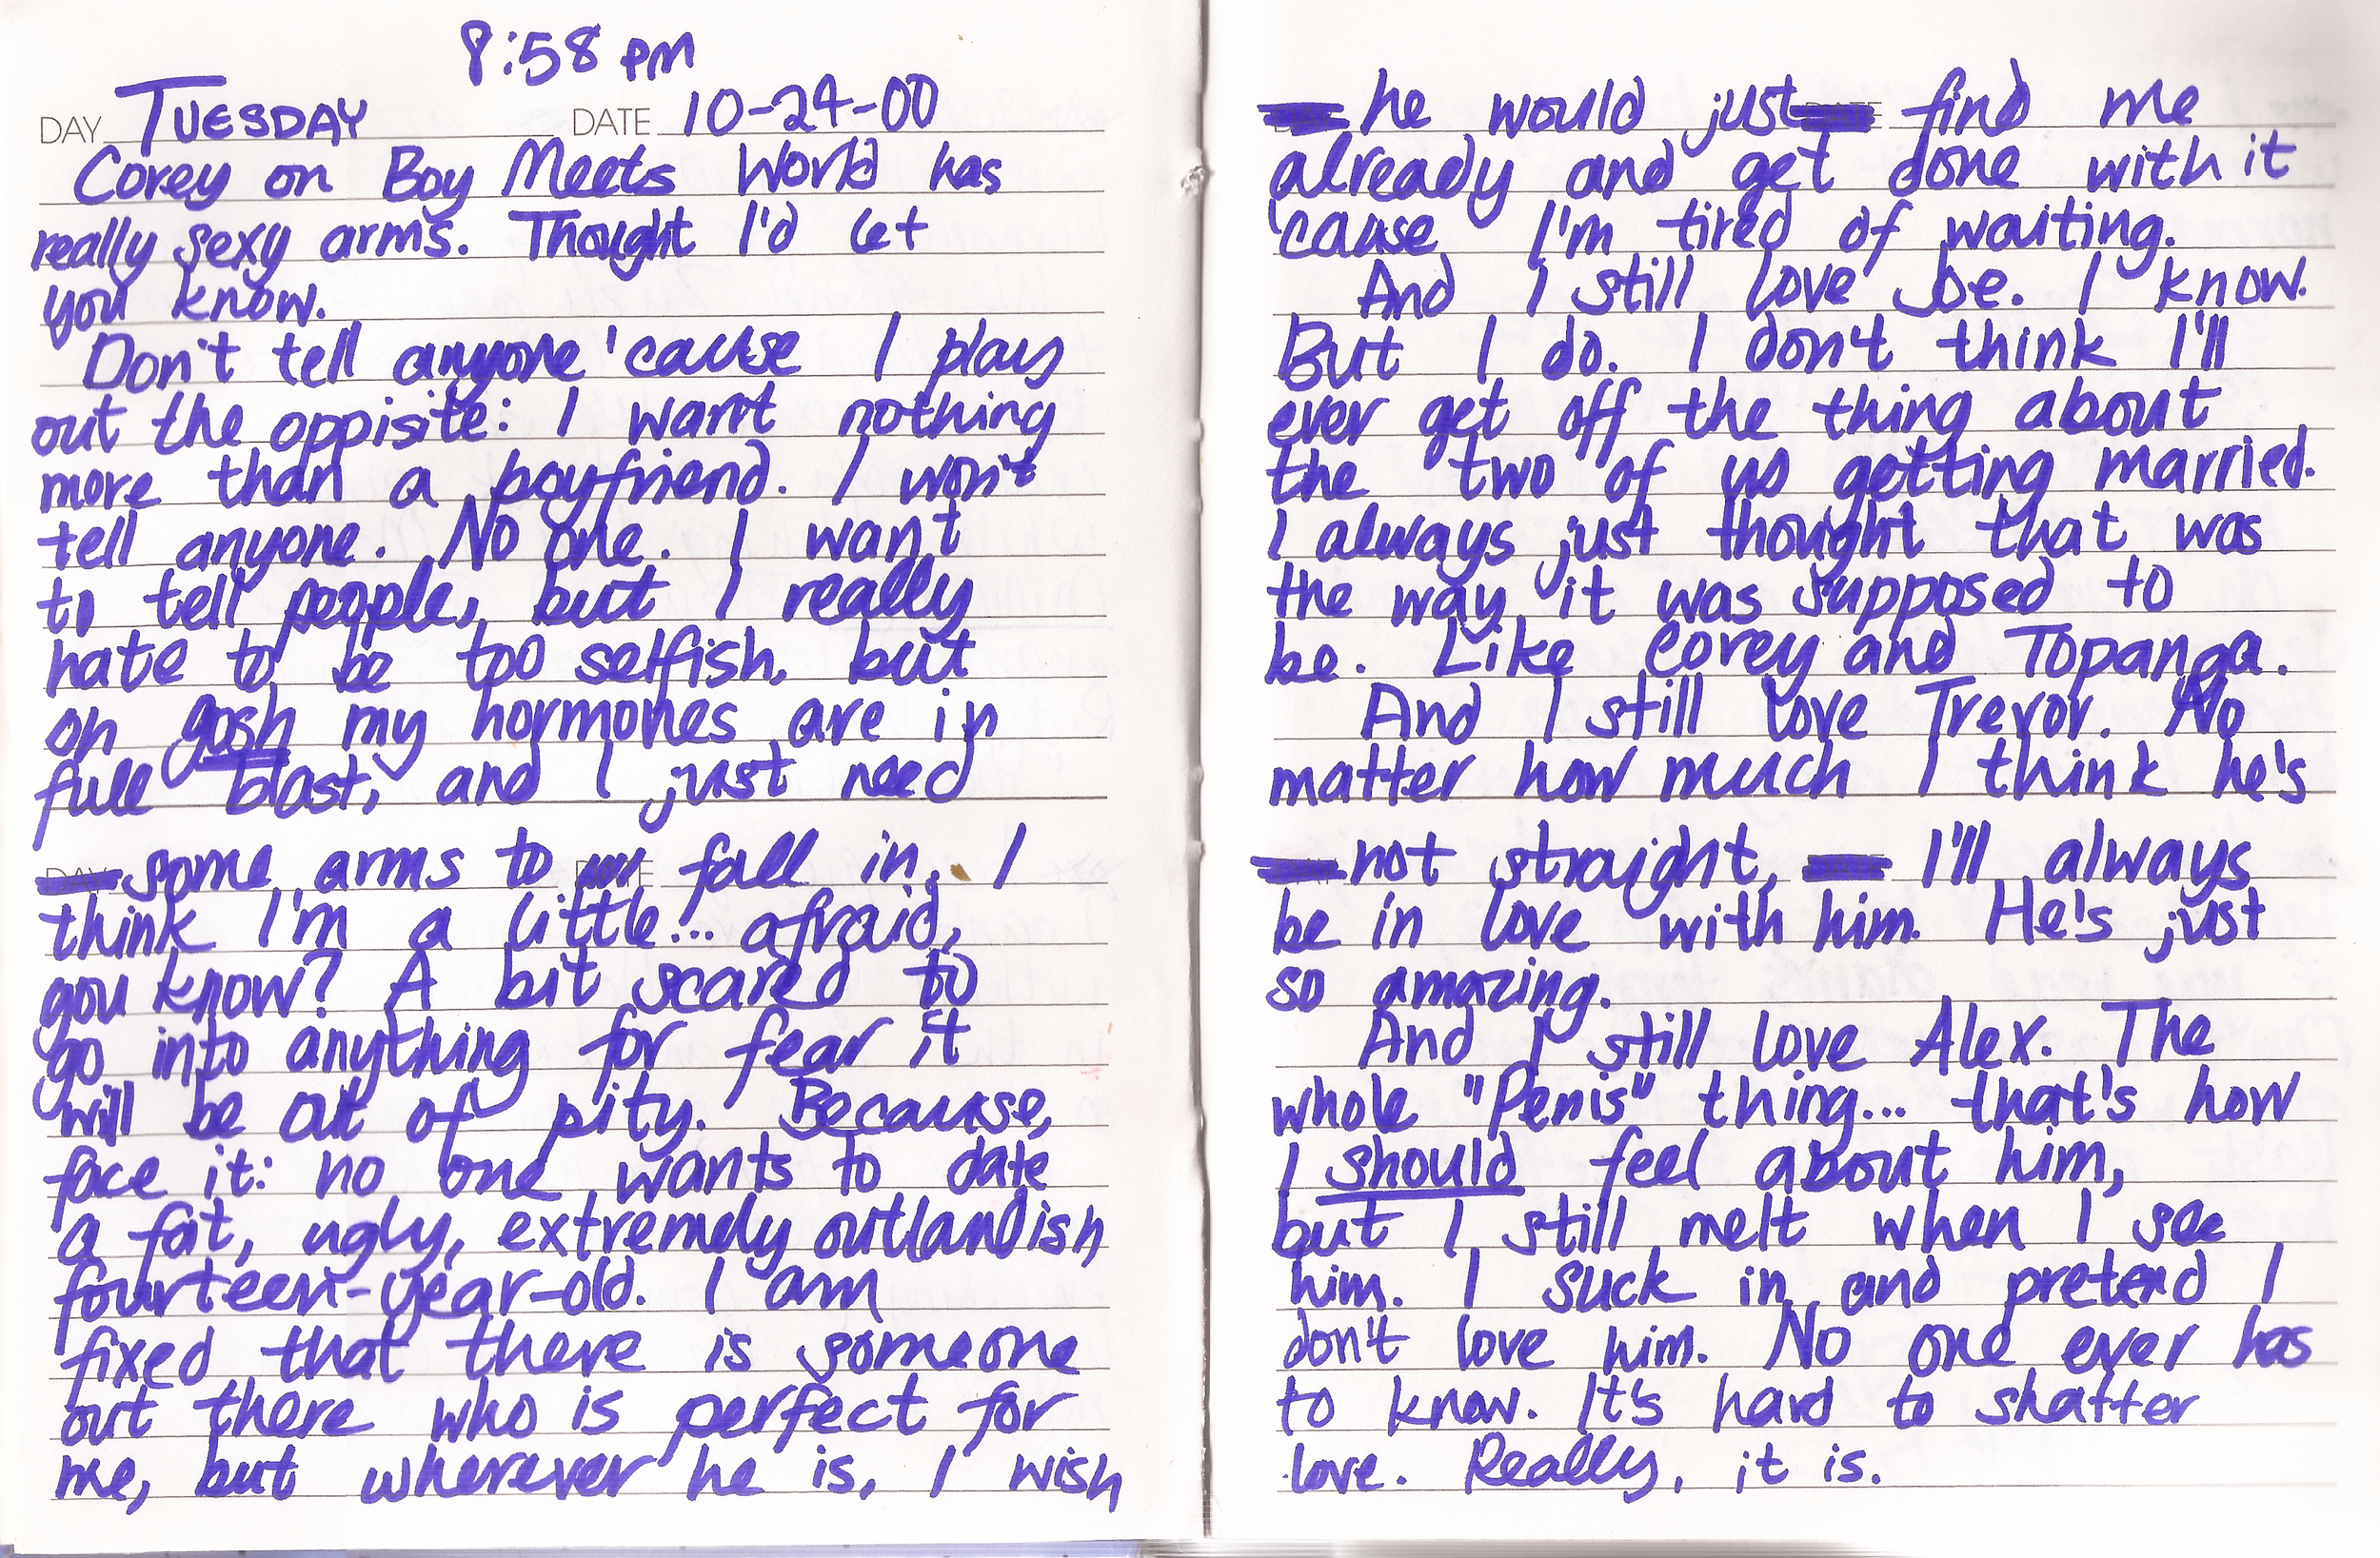 8:58 PM
DAY TUESDAY DATE 10-24-00
Corey on Boy Meets World has
really sexy arms. Thought I'd let
you know.
Don't tell anyone 'cause I play
out the oppisite: I want nothing
more than a boyfriend. I won't
tell anyone. No one. I want
to tell people, but I really
hate to be too selfish, but
oh gosh my hormones are in
full blast, and I just need
some arms to fall in. I
think I'm a little... afraid,
you know? A bit scared to
go into anything for fear it
will be out of pity. Because,
face it: no one wants to date
a fat, ugly, extremely outlandish
fourteen-year-old. I am
fixed that there is someone
out there who is perfect for
me, but wherever he is, I wish
he would just find me
already and get done with it
'cause I'm tired of waiting.
And I still love Joe. I know.
But I do. I don't think I'll
ever get off the thing about
the two of us getting married.
I always just thought that was
the way it was supposed to
be. Like Corey and Topanga.
And I still love Trevor. No
matter how much I think he's
not straight, I'll always
be in love with him. He's just
so amazing.
And I still love Alex. The
whole "Penis" thing... that's how
I should feel about him,
but I still melt when I see
him. I suck in and pretend I
don't love him. No one ever has
to know. It's hard to shatter
love. Really, it is.